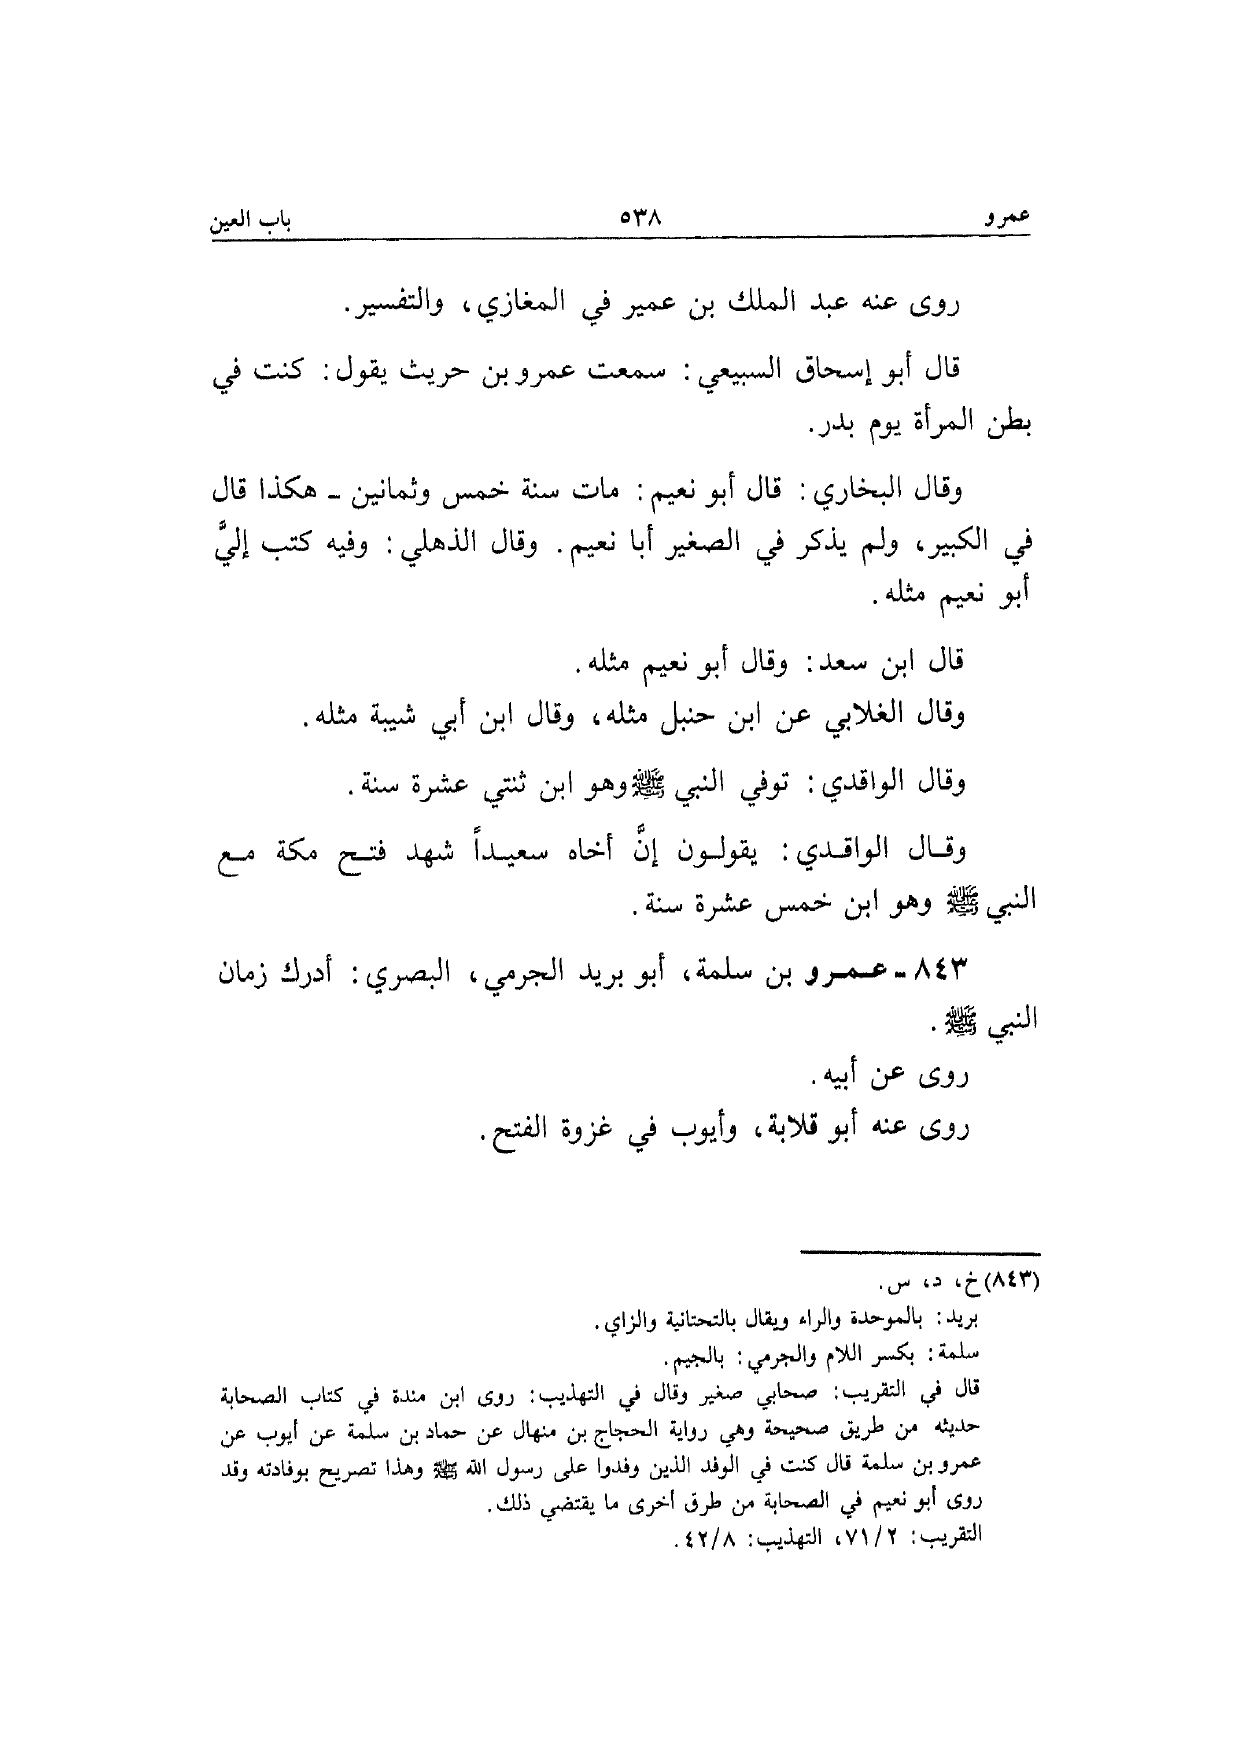 عمرو ٥٣٨ باب العين
روى عنه عبد الملك بن عمير في المغازي، والتفسير.
قال أبو إسحاق السبيعي: سمعت عمرو بن حريث يقول: كنت في
بطن المرأة يوم بدر.
وقال البخاري: قال أبو نعيم: مات سنة خمس وثمانين ـ هكذا قال
في الكبير، ولم يذكر في الصغير أبا نعيم. وقال الذهلي: وفيه كتب إليَّ
أبو نعيم مثله.
قال ابن سعد: وقال أبو نعيم مثله.
وقال الغلابي عن ابن حنبل مثله، وقال ابن أبي شيبة مثله.
وقال الواقدي: توفي النبي ﷺ وهو ابن ثنتي عشرة سنة.
وقال الواقدي: يقولون إنَّ أخاه سعيداً شهد فتح مكة مع
النبي ﷺ وهو ابن خمس عشرة سنة.
٨٤٣ - عمرو بن سلمة، أبو بريد الجرمي، البصري: أدرك زمان
النبي ﷺ.
روى عن أبيه.
روى عنه أبو قلابة، وأيوب في غزوة الفتح.
(٨٤٣) خ، د، س.
بريد: بالموحدة والراء ويقال بالتحتانية والزاي.
سلمة: بكسر اللام والجرمي: بالجيم.
قال في التقريب: صحابي صغير وقال في التهذيب: روى ابن مندة في كتاب الصحابة
حديثه من طريق صحيحة وهي رواية الحجاج بن منهال عن حماد بن سلمة عن أيوب عن
عمرو بن سلمة قال كنت في الوفد الذين وفدوا على رسول الله ﷺ وهذا تصريح بوفادته وقد
روى أبو نعيم في الصحابة من طرق أخرى ما يقتضي ذلك.
التقريب: ٧١/٢، التهذيب: ٤٢/٨.